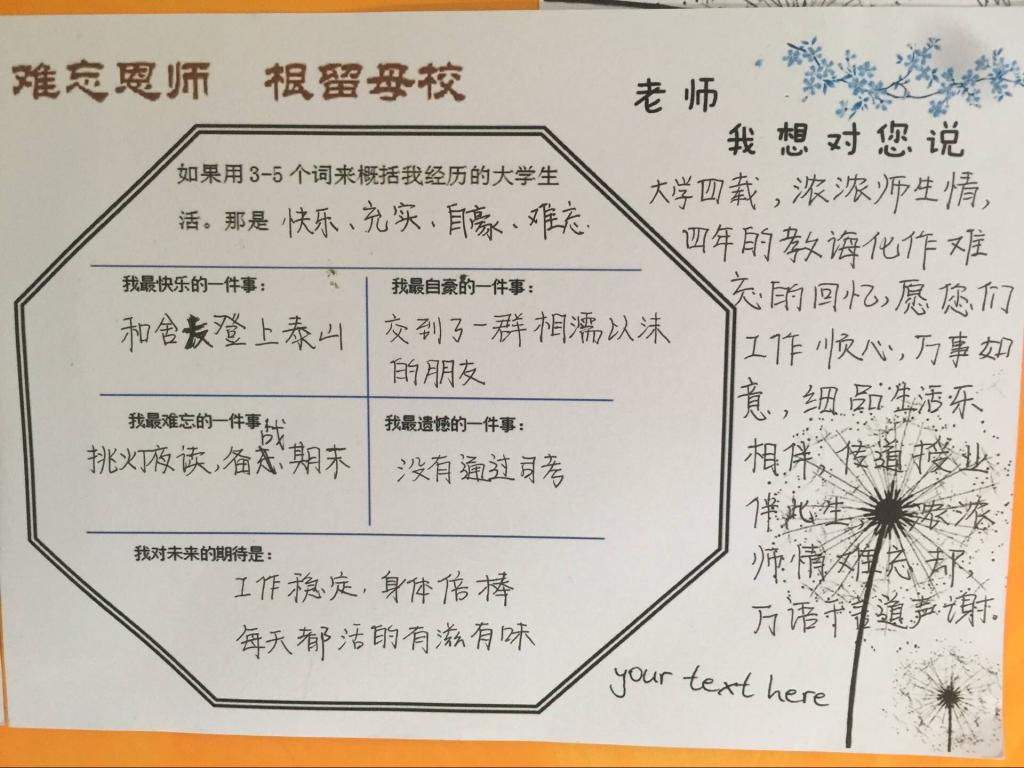 难忘恩师 根留母校
如果用3-5个词来概括我经历的大学生
活。那是 快乐、充实、自豪、难忘.
我最快乐的一件事:
和舍长登上泰山
我最自豪的一件事:
交到了一群相濡以沫
的朋友
我最难忘的一件事:
挑灯夜读,备战期末
我最遗憾的一件事:
没有通过司考
我对未来的期待是:
工作稳定,身体倍棒
每天都活的有滋有味
老师
我想对您说
大学四载,浓浓师生情,
四年的教诲化作难
忘的回忆,愿您们
工作顺心,万事如
意,细品生活乐
相伴,传道授业
伴此生,浓浓
师情难忘却,
万语千言道声谢.
your text here